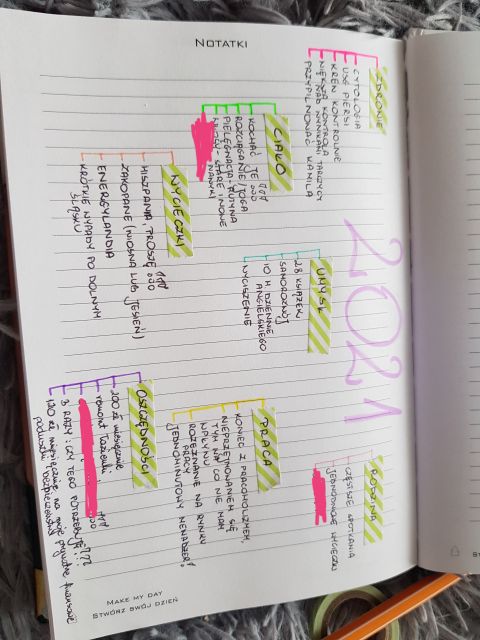 NOTATKI
2021
ZDROWIE
CYTOLOGIA
USG PIERSI
KREW KONTROLNIE
WIĘKSZA KONTROLA
NAD WYNIKAMI TARCZYCY
PRZYPILNOWAĆ KAMILA
CIAŁO
KOCHAĆ JE !!!
ROZCIĄGANIE/JOGA
PIELĘGNACJA: RUTYNA
STARE I NOWE
NAWYKI
WYCIECZKI
HISZPANIA PROSZĘ !!!
ZAKOPANE (WIOSNA LUB JESIEŃ)
ENERGYLANDIA
KRÓTKIE WYPADY PO DOLNYM
ŚLĄSKU
UMYSŁ
28 KSIĄŻEK
SAMOROZWÓJ
10 H DZIENNIE
ANGIELSKIEGO
WYCISZENIE
RODZINA
CZĘSTSZE SPOTKANIA
JEDNODNIOWE WYCIECZKI
PRACA
KONIEC Z PRACOHOLIZMEM
NIEPRZEJMOWANIEM SIĘ
TYM NA CO NIE MAM
WPŁYWU
ROZEZNANIE NA RYNKU
PRACY
JEDNOMINUTOWY MENADŻER
OSZCZĘDNOŚCI
200 zł miesięcznie
remont łazienki
3 RAZY: CZY TEGO POTRZEBUJĘ???
120 zł miesięcznie na moje prywatne finansowe
poduszki bezpieczeństwa
MAKE MY DAY
STWÓRZ SWÓJ DZIEŃ